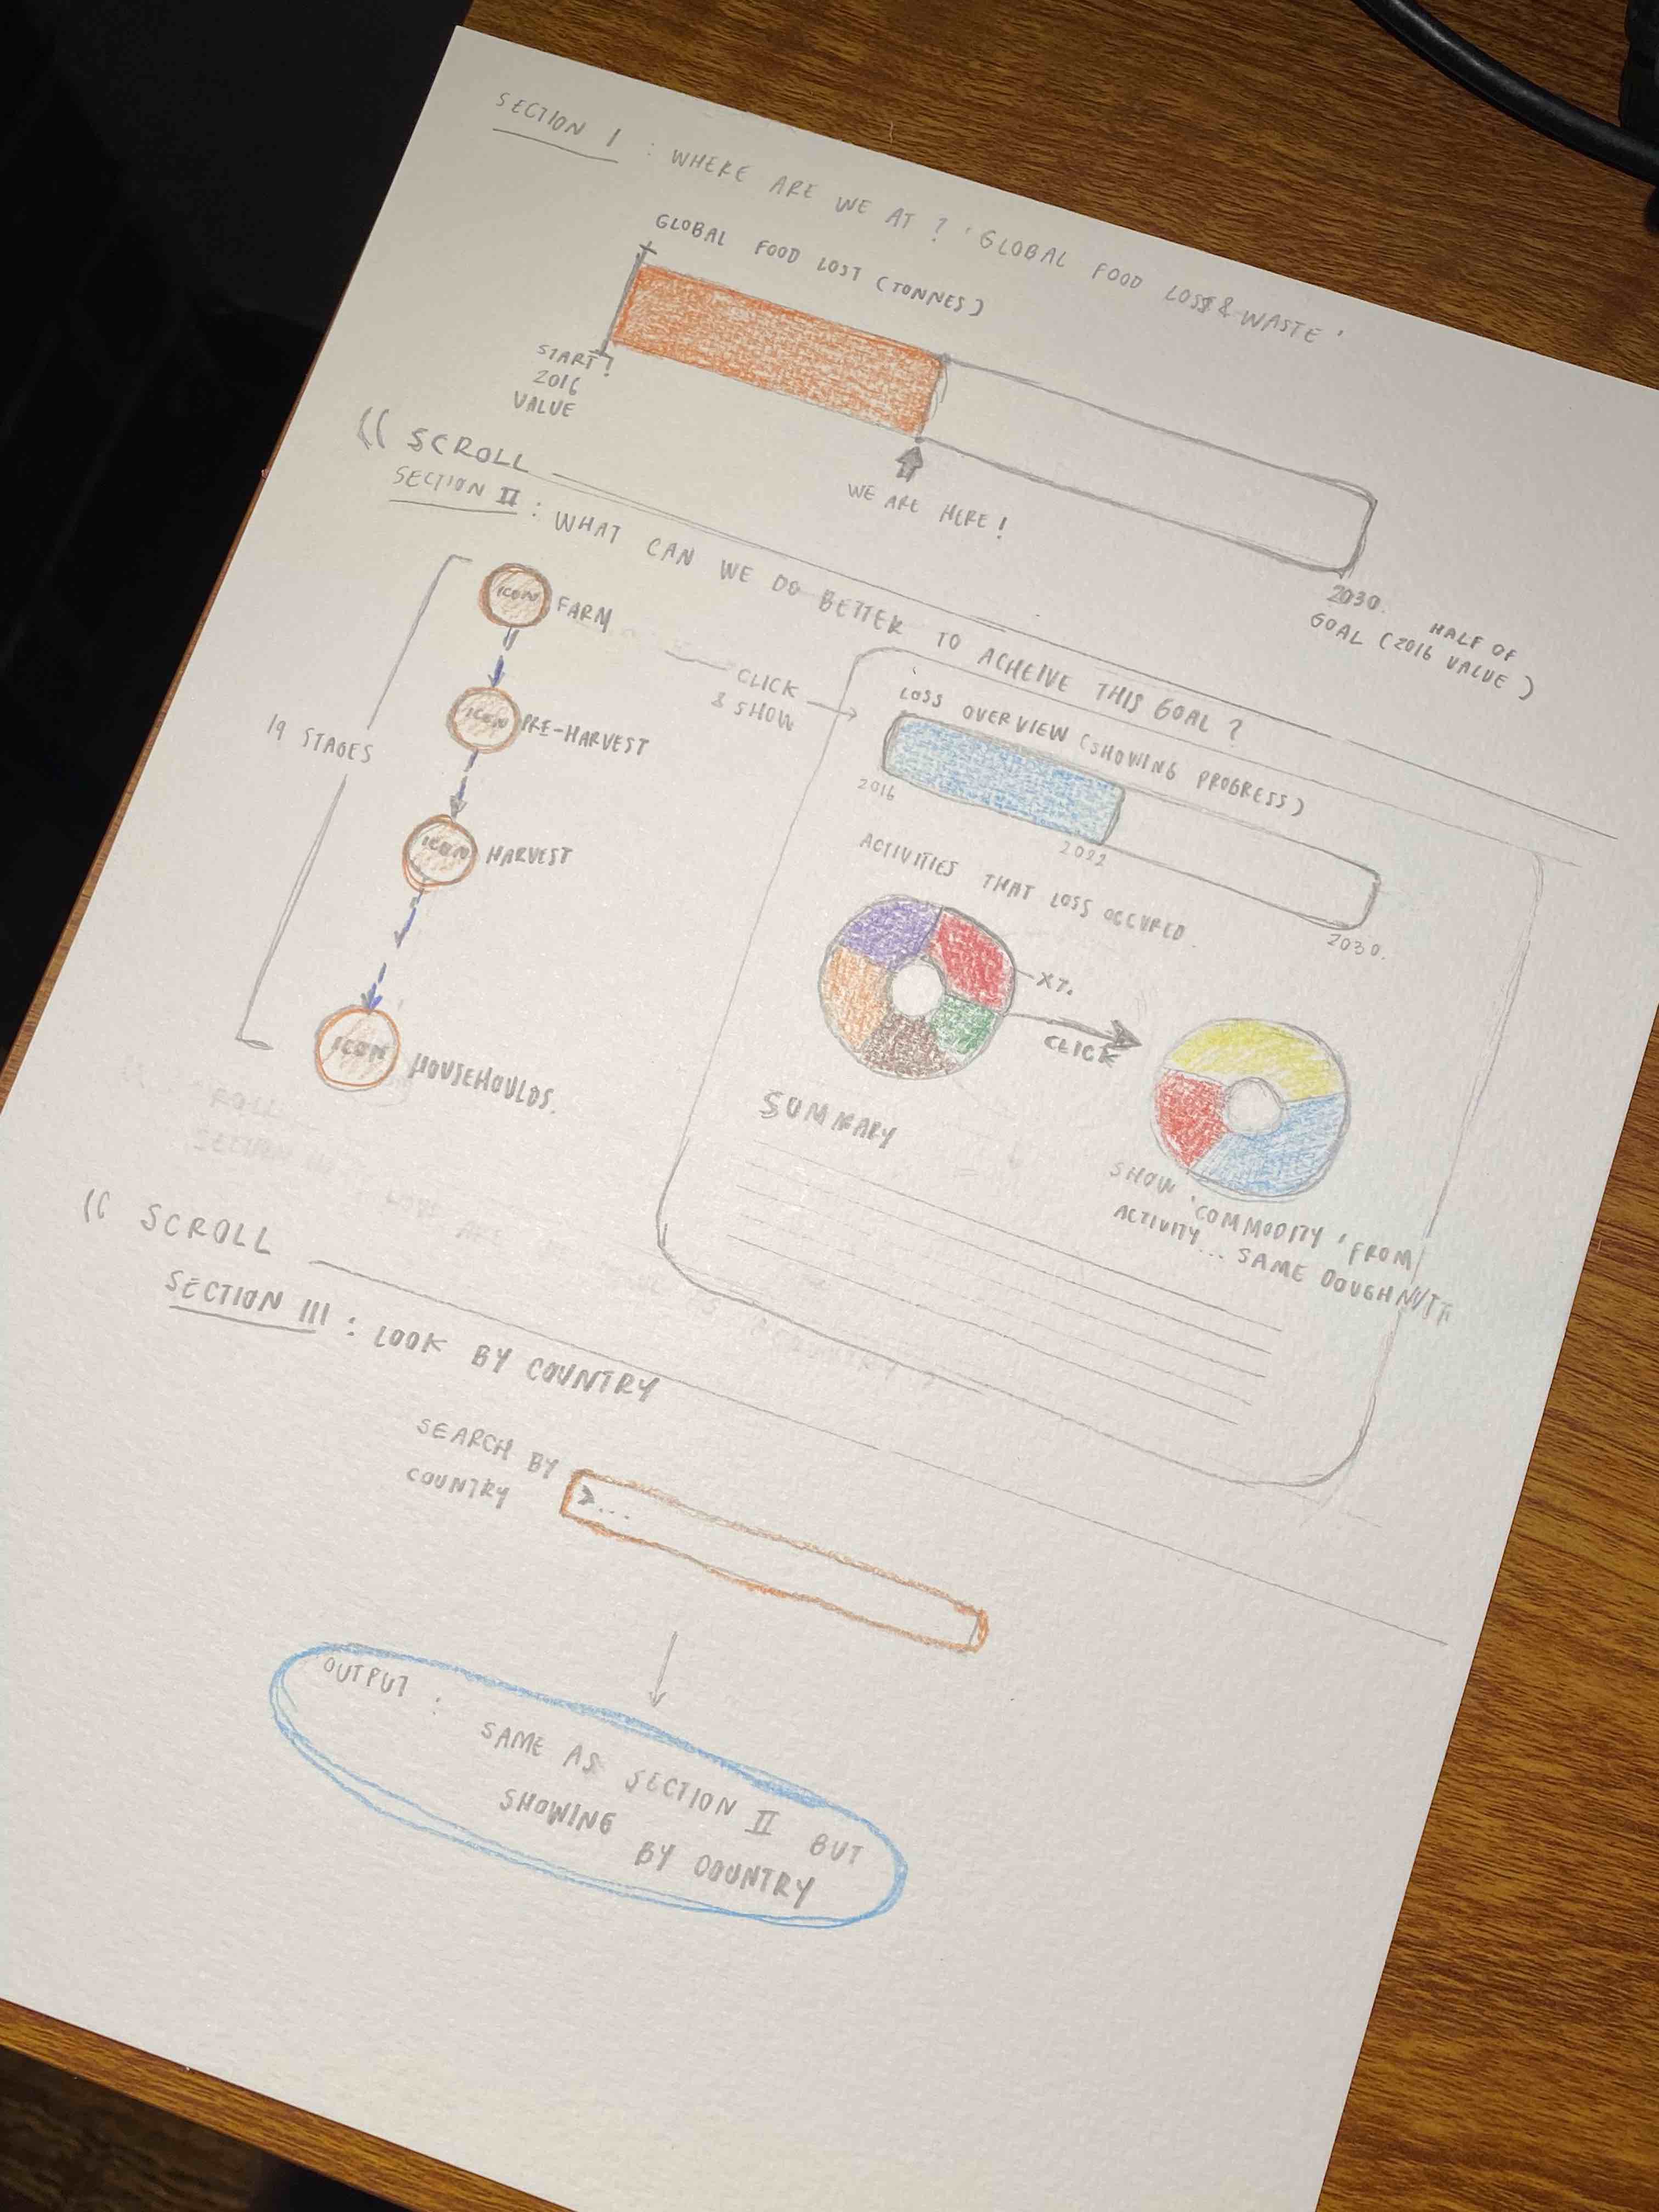 SECTION I : WHERE ARE WE AT ? 'GLOBAL FOOD LOSS & WASTE'
GLOBAL FOOD LOST (TONNES)
START?
2016
VALUE
WE ARE HERE !
2030.
GOAL (2016 VALUE)
HALF OF
(( SCROLL
SECTION II : WHAT CAN WE DO BETTER TO ACHEIVE THIS GOAL ?
19 STAGES
ICON FARM
ICON PRE-HARVEST
ICON HARVEST
ICON HOUSEHOULDS.
CLICK
& SHOW
LOSS OVERVIEW (SHOWING PROGRESS)
2016
2022
2030.
ACTIVITIES THAT LOSS OCCURED.
X%.
CLICK
SHOW 'COMMODITY' FROM
ACTIVITY... SAME DOUGHNUT
SUMMARY
(( SCROLL
SECTION III : LOOK BY COUNTRY
SEARCH BY
COUNTRY
>...
OUTPUT :
SAME AS SECTION II BUT
SHOWING
BY COUNTRY